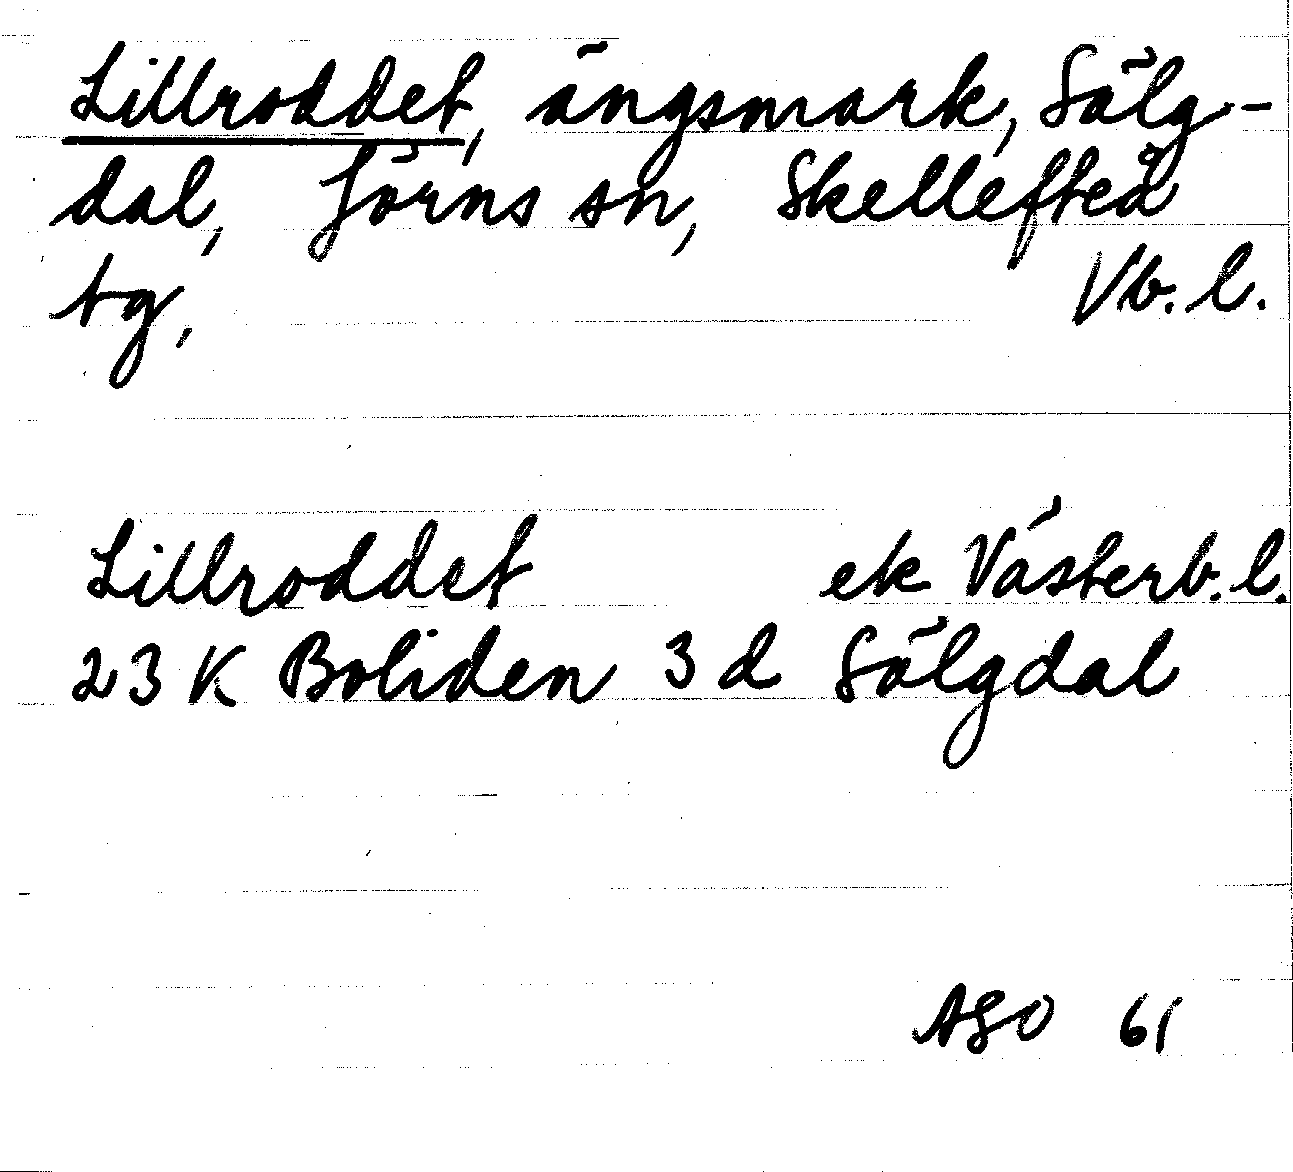 Lillroddet, ängsmark, Sälg-
dal, Jörns sn, Skellefteå
tg, Vb. l.
Lillroddet ek Västerb. l.
23 K Boliden 3 d Sälgdal
ASO 61